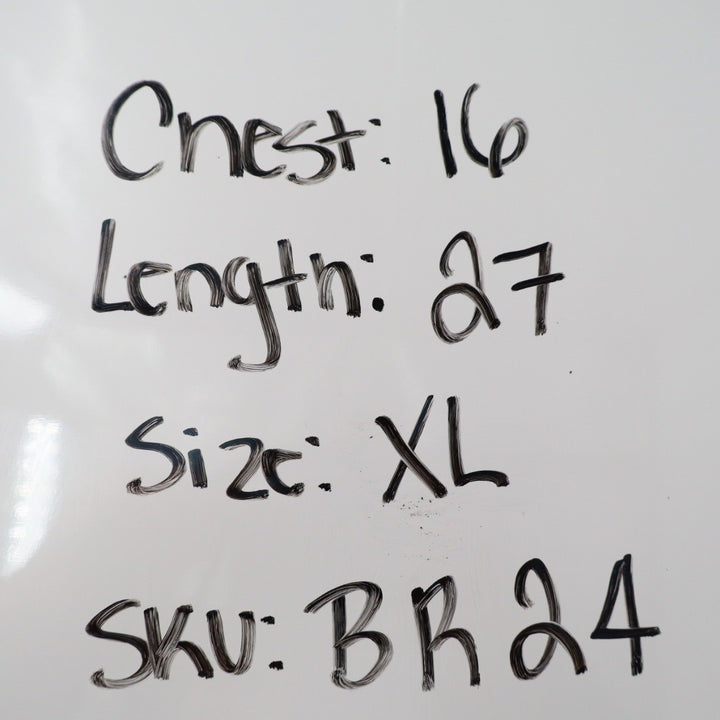 Chest: 16
Length: 27
Size: XL
SKU: BR24